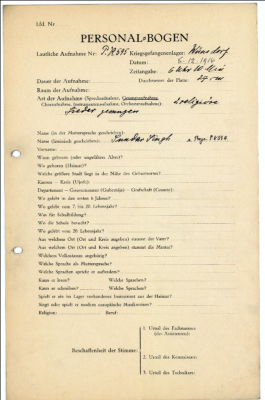 Lfd. Nr.
PERSONAL-BOGEN
Lautliche Aufnahme Nr.: P.K 595 Kriegsgefangenenlager: Wünsdorf
Datum: 6.12.1916
Zeitangabe: 6 Uhr
Dauer der Aufnahme: Durchmesser der Platte: 27 cm
Raum der Aufnahme:
Art der Aufnahme (Sprechaufnahme, Gesangsaufnahme, 2 religiöse
Choraufnahme, Instrumentenaufnahme, Orchesteraufnahme):
Lieder gesungen
Name (in der Muttersprache geschrieben):
Name (lateinisch geschrieben): Sundar Singh
Vorname:
Wann geboren (oder ungefähres Alter)?
Wo geboren (Heimat)?
Welche größere Stadt liegt in der Nähe des Geburtsortes?
Kanton – Kreis (Ujedz):
Departement – Gouvernement (Gubernija) – Grafschaft (County):
Wo gelebt in den ersten 6 Jahren?
Wo gelebt vom 7. bis 20. Lebensjahr?
Was für Schulbildung?
Wo die Schule besucht?
Wo gelebt vom 20. Lebensjahr?
Aus welchem Ort (Ort und Kreis angeben) stammt der Vater?
Aus welchem Ort (Ort und Kreis angeben) stammt die Mutter?
Welchem Volksstamm angehörig?
Welche Sprache als Muttersprache?
Welche Sprachen spricht er außerdem?
Kann er lesen? Welche Sprachen?
Kann er schreiben? Welche Sprachen?
Spielt er ein im Lager vorhandenes Instrument aus der Heimat?
Singt oder spielt er modern europäische Musikweisen?
Religion: Beruf:
1. Urteil des Fachmannes
(des Assistenten):
Beschaffenheit der Stimme:
2. Urteil des Kommissars:
3. Urteil des Technikers: